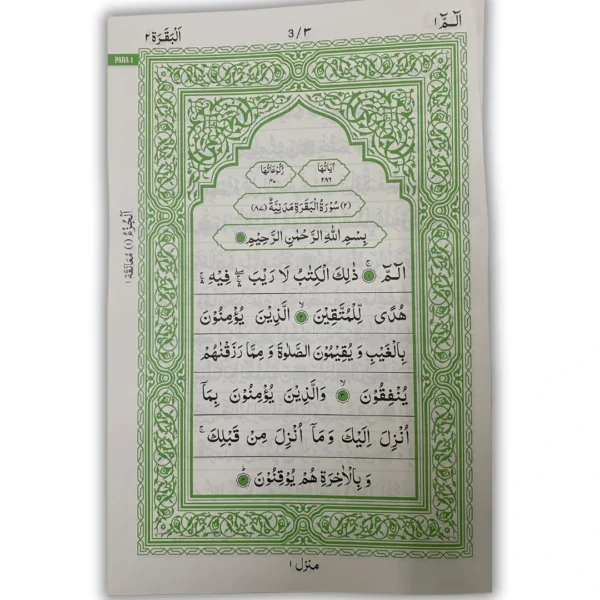 الٓـمّٓ ١
3/٣
اَلْبَقَرَة ٢
PARA 1
اٰيَاتُهَا
٢٨٦
رُكُوْعَاتُهَا
٤٠
(٢) سُوْرَةُ الْبَقَرَةِ مَدَنِيَّةٌ (٨٧)
بِسْمِ اللهِ الرَّحْمٰنِ الرَّحِيْمِ
الٓـمّٓ ۚ ﴿١﴾ ذٰلِكَ الْكِتٰبُ لَا رَيْبَ ۛۖ فِيْهِ ۛۚ
هُدًى لِّلْمُتَّقِيْنَ ۙ ﴿٢﴾ الَّذِيْنَ يُؤْمِنُوْنَ
بِالْغَيْبِ وَ يُقِيْمُوْنَ الصَّلٰوةَ وَ مِمَّا رَزَقْنٰهُمْ
يُنْفِقُوْنَ ۙ ﴿٣﴾ وَالَّذِيْنَ يُؤْمِنُوْنَ بِمَاۤ
اُنْزِلَ اِلَيْكَ وَ مَاۤ اُنْزِلَ مِنْ قَبْلِكَ ۚ
وَ بِالْاٰخِرَةِ هُمْ يُوْقِنُوْنَ ؕ ﴿٤﴾
اَلْجُزْءُ (١) مُعَانَقَة ١
منزل ١